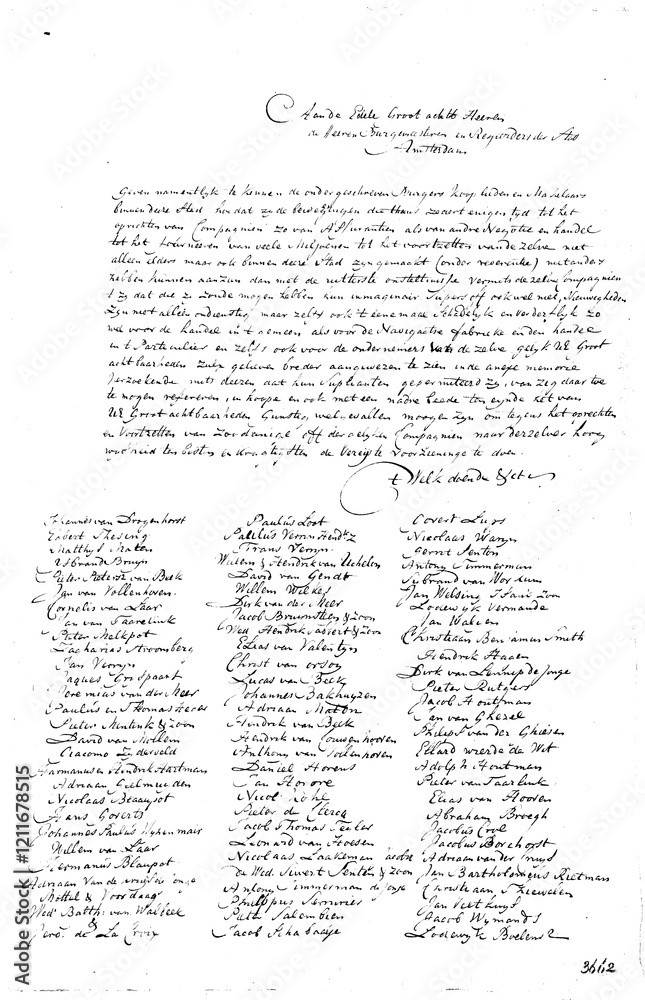 Aan de Edele Groot achtb Heeren
de Heeren Burgemeesteren en Regeerders der Stad
Amsterdam
Geven namentlyk te kennen de ondergeschreven Burgers Koop lieden en Makelaars
binnen deze Stad hoe dat zy de beweegingen die thans zedert enigen tyd tot het
oprichten van Compagnien zo van Assurantien als van andre Negotie en handel
tot het fourneeren van veele Miljoenen tot het voortzetten van de zelve niet
alleen elders maar ook binnen deeze Stad zyn gemaakt (onder reverentie) niet anders
hebben kunnen aanzien dan met de uitterste ontsteltenisse vermits de zelve Compagnien
t zy dat die z zoude mogen hebben hun ook wel met Nieuwigheden
zyn niet alleen ondienstig maar zelfs ook t eenemaal Schadelyk en verderflyk zo
wel voor de handel in t gemeen als voor de Navigatie fabrieke en den handel
in t Particulier en zelfs ook voor de ondernemers van de zelve gelyk UE Groot
achtbaarheden zulx gelieven breder aangewezen te zien in de anexe memorie
verzoekende mits deezen dat hun Suplianten gepermitteerd zy, van zig daar toe
te mogen refereren, in hoope en ook met een nadre beede ten eynde het van
UE Groot achtbaarheden Gunstig welgevallen moogen zyn om tegens het oprechten
en Voortzetten van zoodanige off dergelyken Compagnien naar derzelver hoog
wysheid ten besten en de Vereiste voorzieninge te doen.
t Welk doende &et
Johannes van Drogenhorst
Egbert Thesing
Matthys Maten
IJsbrand Bruyn
Pieter Pietersz van Beek
Jan van Vollenhoven
Cornelis van Laar
Jan van Taarelink
Pieter Melkpot
Zacharias Stroomberg
Jan Verryn
Jaques Grospaart
Jeremias van der Meer
Paulus en Thomas
Pieter Mentink & zoon
David van Mollem
Giacomo Zuderveld
Harmanus & Hendrik Hartman
Adriaan Gielmuyden
Nicolaas Beaujot
Hans Goverts
Johannes Paulus
Willem van Laar
Hermanus Blaupot
Adriaan van de Jonge
Mottel & Voordaagh
Wedᵉ Batth: van Walbeek
Jero. de La Croix
Paulus Loot
Paulus Verryn Hendkz
Frans Verryn
Willem & Hendrik van Uchelen
David van Gendt
Willem Wilkes
Dirk van der Meer
Jacob Bruunsteen & zoon
Wed Hendrik Sievert & zoon
Elias van Valentyn
Christ van orsoy
Lucas van Beek
Johannes Bakhuyzen
Adriaan Maten
Hendrik van Beek
Hendrik van Couwenhooven
Anthony van Vollenhoven
Daniel Hovens
Jan Horore
Nicol Kohl
Pieter de Clercq
Jacob Thomas Teuler
Leonard van Hoesen
Nicolaas Laakeman
de Wed Sivert Senten & zoon
Antony Zimmerman de Jonge
Philippus Serrurier
Pieter Salembien
Jacob Schabaelje
Covert Lups
Nicolaas Waryn
Gerrit Senten
Antony Zimmerman
Sybrand van Workum
Jan Welsing I Saxe zoon
Lodewyk Vernande
Jan Walven
Christiaan Benjamin Smith
Hendrik Haaen
Dirk van Lennep de Jonge
Pieter Rutgers
Jacob Houtman
Jan van Ghezel
Philips van der Ghiesen
Ellard Weerde de Wet
Adolph Houtman
Pieter van Taarlink
Elias van Hooren
Abraham Broegh
Jacobus Crol
Jacobus Borchorst
Adriaan van der Truys
Jan Bartholomeus Rietman
Christiaan Schrewelen
Jan Veekuys
Jacob Wymands
Lodewyk Boelens
3642
Adobe Stock | #1211678515
Adobe Stock